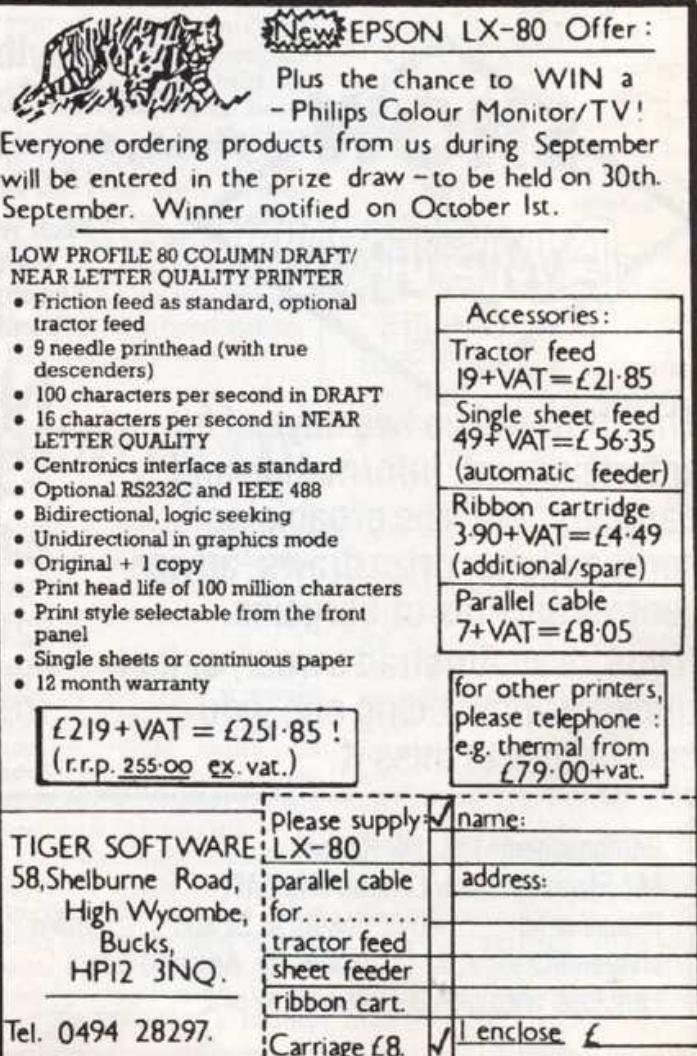 New EPSON LX-80 Offer :
Plus the chance to WIN a
- Philips Colour Monitor/TV!
Everyone ordering products from us during September
will be entered in the prize draw - to be held on 30th.
September. Winner notified on October 1st.
LOW PROFILE 80 COLUMN DRAFT/
NEAR LETTER QUALITY PRINTER
• Friction feed as standard, optional
tractor feed
• 9 needle printhead (with true
descenders)
• 100 characters per second in DRAFT
• 16 characters per second in NEAR
LETTER QUALITY
• Centronics interface as standard
• Optional RS232C and IEEE 488
• Bidirectional, logic seeking
• Unidirectional in graphics mode
• Original + 1 copy
• Print head life of 100 million characters
• Print style selectable from the front
panel
• Single sheets or continuous paper
• 12 month warranty
£219+VAT = £251·85 !
(r.r.p. 255·00 ex. vat.)
Accessories :
Tractor feed
19+VAT=£21·85
Single sheet feed
49+VAT=£56·35
(automatic feeder)
Ribbon cartridge
3·90+VAT=£4·49
(additional/spare)
Parallel cable
7+VAT=£8·05
for other printers,
please telephone :
e.g. thermal from
£79·00+vat.
TIGER SOFTWARE
58, Shelburne Road,
High Wycombe,
Bucks,
HP12 3NQ.
Tel. 0494 28297.
Please supply: ✓
LX-80
parallel cable
for............
tractor feed
sheet feeder
ribbon cart.
Carriage £8. ✓
name:
address:
I enclose £